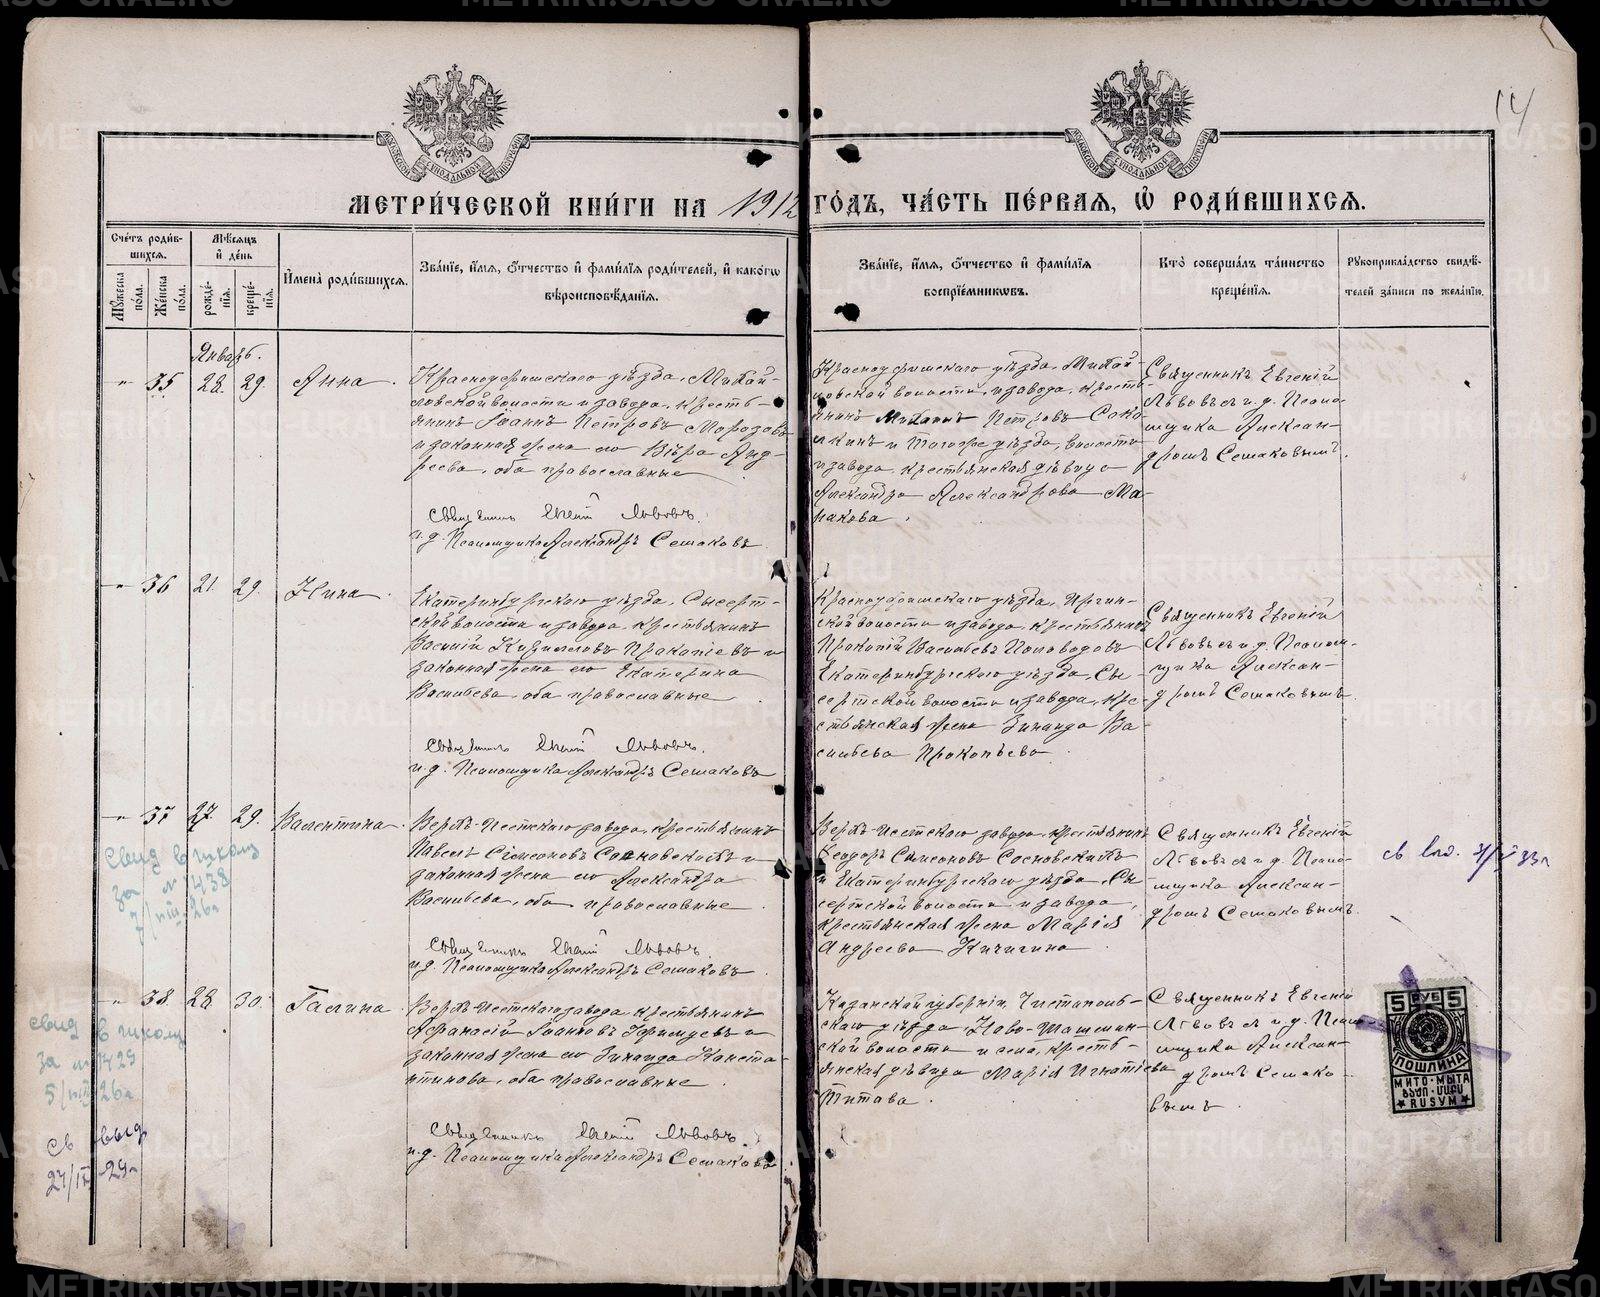 14
МЕТРИ́ЧЕСКОЙ КНИ́ГИ НА 1912 ГО́ДЪ, ЧА́СТЬ ПЕ́РВАЯ, Ѡ҆ РОДИ́ВШИХСЯ.
Сче́тъ роди́в-
шихся.
Мꙋ́жеска по́ла.
Же́нска по́ла.
Мѣ́сяцъ
и҆ де́нь
рожде́-
нїя.
креще́-
нїя.
И҆мена̀ роди́вшихся.
Зва́нїе, и҆́мя, ѻ҆́тчество и҆ фами́лїя роди́телей, и҆ како́гѡ
вѣроисповѣ́данїя.
Зва́нїе, и҆́мя, ѻ҆́тчество и҆ фами́лїя
воспрїе́мникѡвъ.
Кто̀ соверша́лъ та́инство
креще́нїя.
Рꙋкоприкла́дство свидѣ́-
телей за́писи по жела́нїю.
Январь.
" 35 28. 29. Анна.
Красноуфимскаго уѣзда, Михай-
ловской волости и завода, кресть-
янинъ Іоаннъ Петровъ Морозовъ
и законная жена его Вѣра Анд-
реева, оба православные
Священникъ Евгеній Львовъ.
и.д. Псаломщика Александръ Семаковъ
Красноуфимскаго уѣзда, Михай-
ловской волости и завода, кресть-
янинъ Михаилъ Петровъ Соко-
и завода, крестьянская дѣвица
Александра Александрова Ма-
накова.
Священникъ Евгеній
Львовъ съ и.д. Псало-
мщика Алексан-
дромъ Семаковымъ.
" 36 21. 29. Нина.
Екатеринбургскаго уѣзда, Сысерт-
ской волости и завода, крестьянинъ
Василій Кирилловъ Пракопіевъ и
законная жена его Екатерина
Васильева, оба православные
Священникъ Евгеній Львовъ.
и.д. Псаломщика Александръ Семаковъ
Красноуфимскаго уѣзда, Иргин-
ской волости и завода, крестьянинъ
Прокопій Васильевъ Половодовъ
Екатеринбургскаго уѣзда, Сы-
сертской волости и завода, кре-
стьянская жена Зинаида Ва-
сильева Прокопьева.
Священникъ Евгеній
Львовъ съ и.д. Псалом-
щика Алексан-
дромъ Семаковымъ.
" 37 27 29. Валентина.
Верхъ-Исетскаго завода, крестьянинъ
Павелъ Симеоновъ Сосновскихъ и
законная жена его Александра
Васильева, оба православные
Священникъ Евгеній Львовъ.
и.д. Псаломщика Александръ Семаковъ
Верхъ-Исетскаго завода, крестьянинъ
Ѳеодоръ Симеоновъ Сосновскихъ
и Екатеринбургскаго уѣзда, Сы-
сертской волости и завода,
крестьянская жена Марія
Андреева Кичигина
Священникъ Евгеній
Львовъ съ и.д. Псало-
мщика Алексан-
дромъ Семаковымъ.
свид в школу
за № 1438
7/VIII-26г
" 38 28 30. Галина.
Верхъ-Исетскаго завода крестьянинъ
Афанасій Іоанновъ и
законная жена его Зинаида Конста-
нтинова, оба православные.
Священникъ Евгеній Львовъ.
и.д. Псаломщика Александръ Семаковъ
Казанской губерніи, Чистополь-
скаго уѣзда Ново-Шешмин-
ской волости и села, кресть-
янская дѣвица Марія Игнатіева
Титова.
Священникъ Евгеній
Львовъ съ и.д. Псало-
мщика Алексан-
дромъ Семако-
вымъ.
свид в школу
за № 1429
5/VIII 26г
св выд
5 РУБ 5
ПОШЛИНА
МИТО·МЫТА
RUSYM